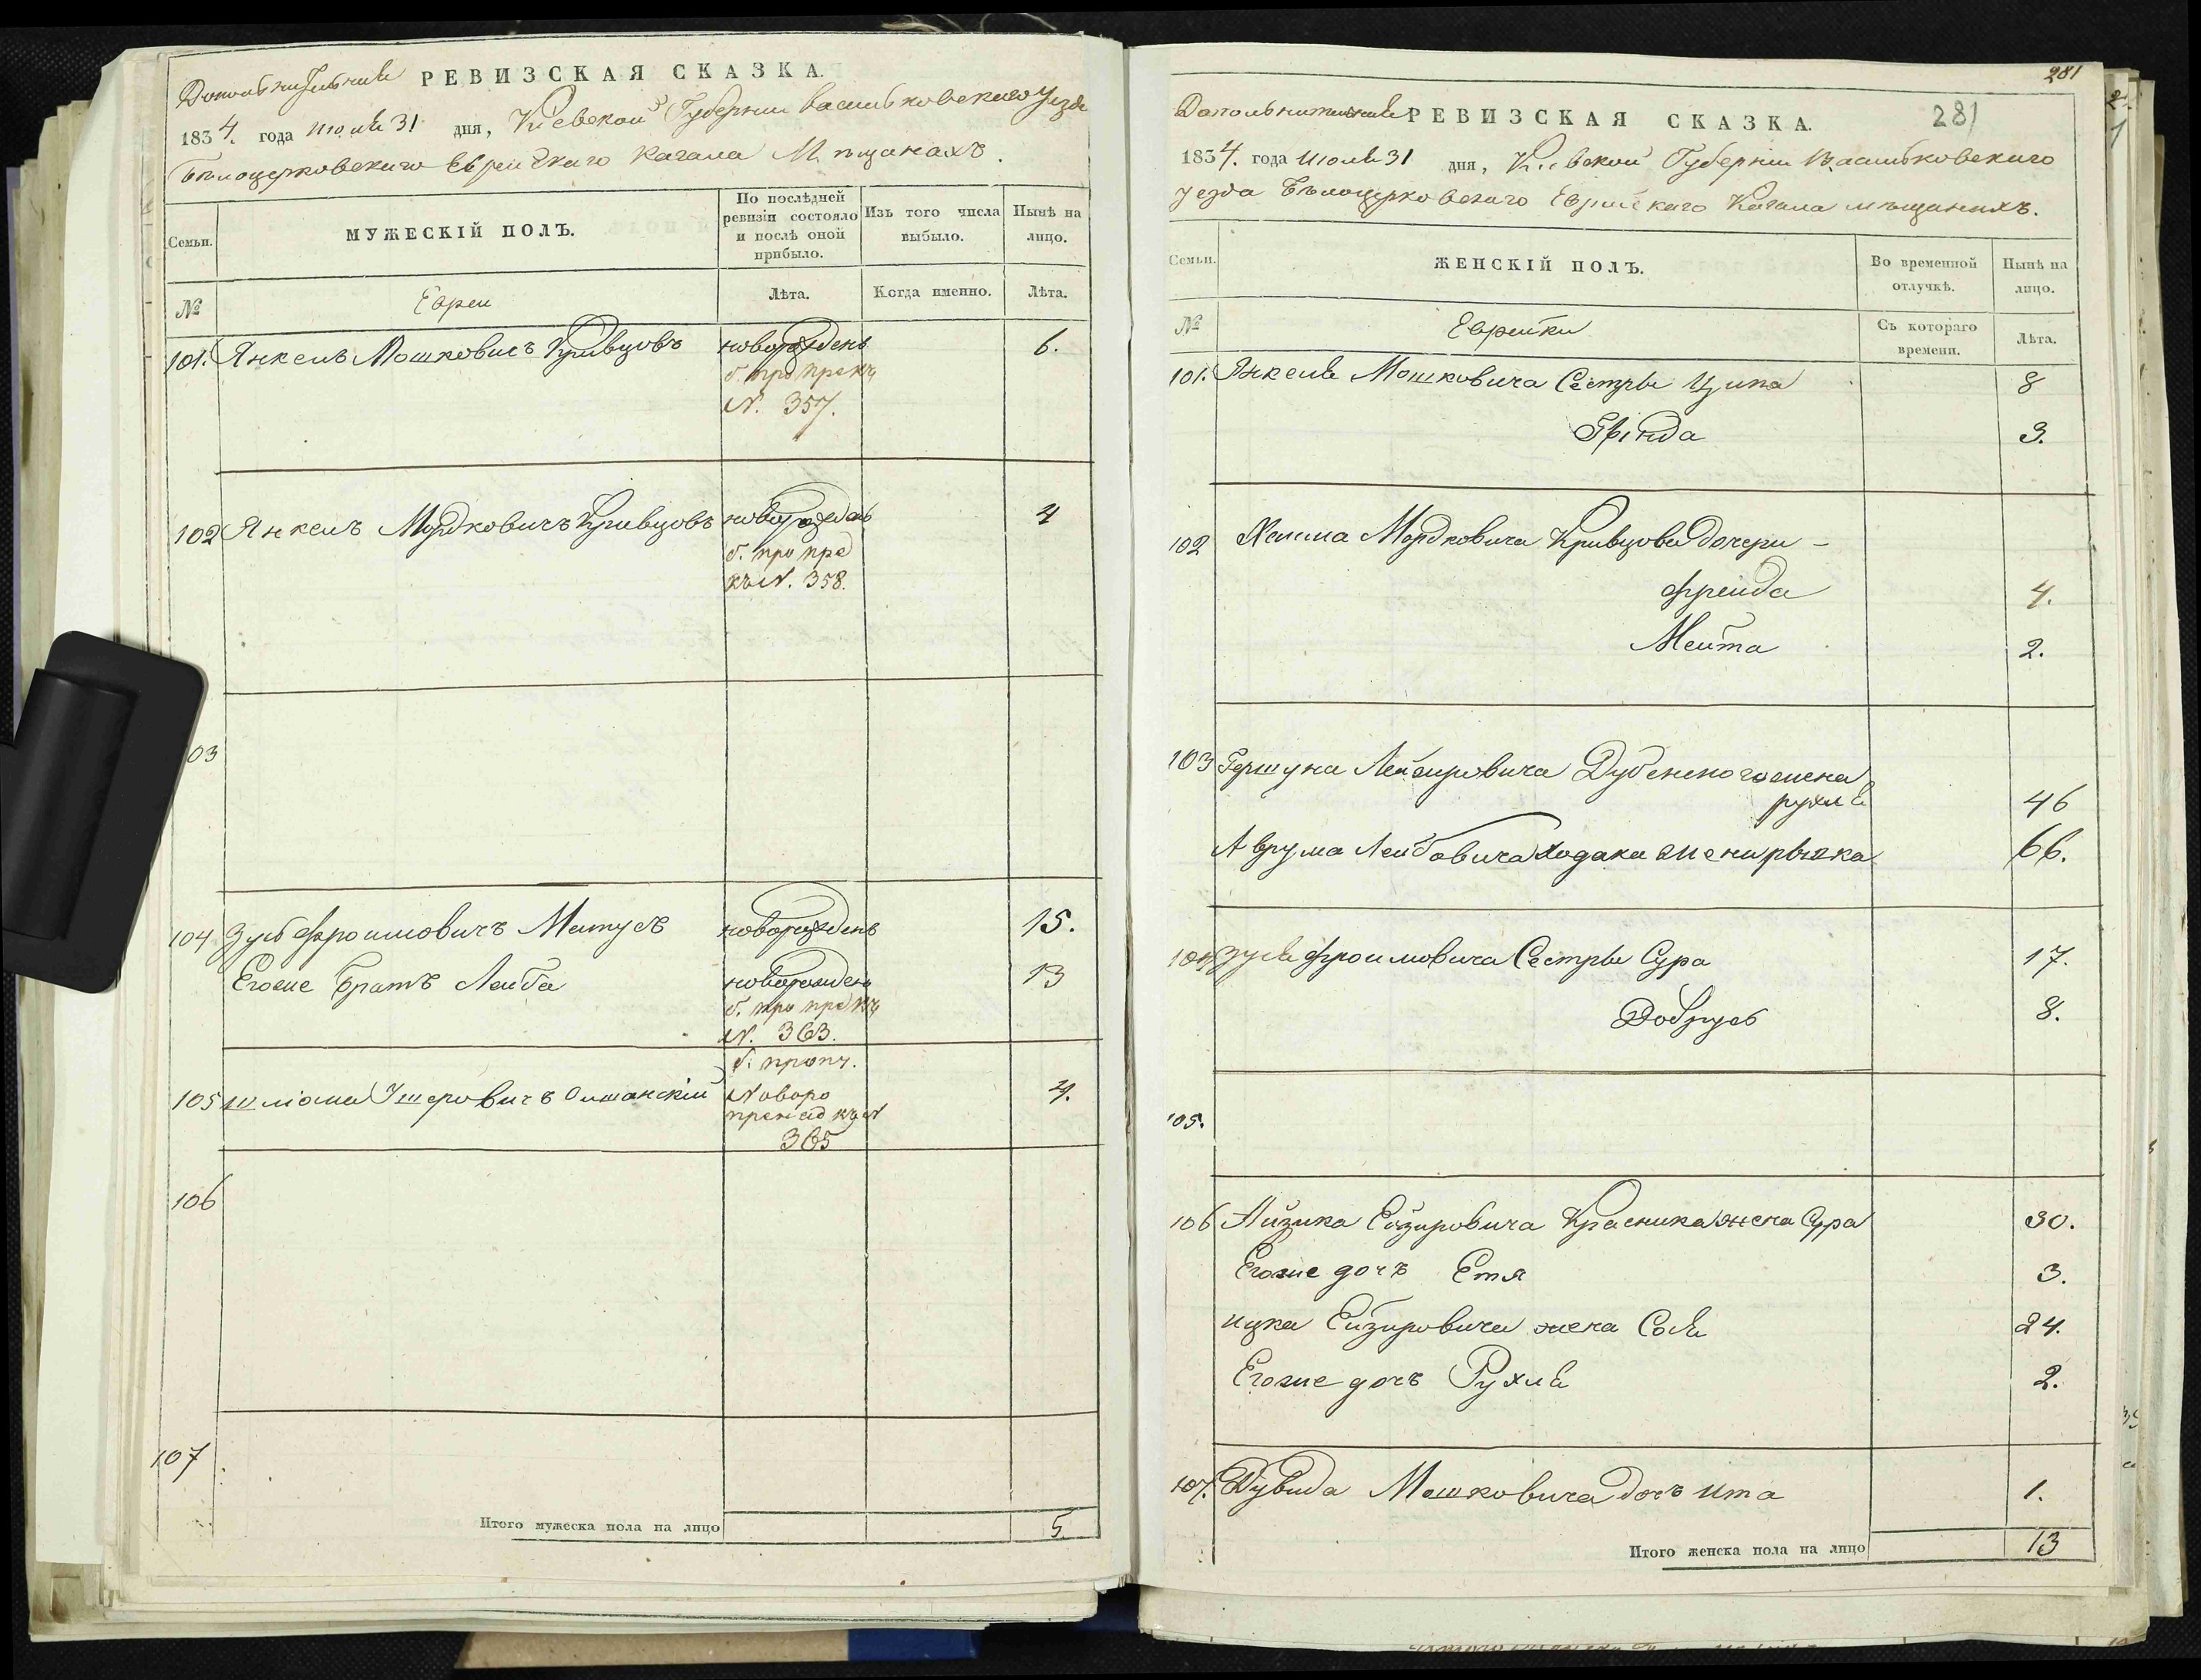 Дополнительная РЕВИЗСКАЯ СКАЗКА.
1834. года Июля 31 дня, Кіевской Губерніи Васильковскаго Уезда
Бѣлоцерковскаго Еврейскаго Кагала Мѣщанахъ.
Семьи.
МУЖЕСКІЙ ПОЛЪ.
По послѣдней ревизіи состояло и послѣ оной прибыло.
Изъ того числа выбыло.
Нынѣ на лицо.
№
Евреи
Лѣта.
Когда именно.
Лѣта.
101. Янкель Мошковичъ Кривцовъ новорожденъ 6.
б. про прекъ
N. 357.
102 Янкель Мордковичъ Кривцовъ новорожденъ 4
б. про пре
къ N. 358.
03
104 Зусь Фроимовичъ Матусъ новорожденъ 15.
Егоже братъ Лейба новорожденъ 13
б. про прекъ
N. 363.
б. проп.
105 Шлiома Ушеровичъ Ольшанскій Новоро 4.
пренад къ N
365
106
107
Итого мужеска пола на лицо 5.
281
Дополнительная РЕВИЗСКАЯ СКАЗКА. 281
1834. года Июля 31 дня, Кіевской Губерніи Васильковскаго
Уезда Бѣлоцерковскаго Еврейскаго Кагала мѣщанихъ.
Семьи.
ЖЕНСКІЙ ПОЛЪ.
Во временной отлучкѣ.
Нынѣ на лицо.
№
Еврейки
Съ котораго времени.
Лѣта.
101. Янкеля Мошковича Сестры Ципа 8
3.
102 Хаима Мордковича Кривцова дочери -
Фрейда 4.
Мейта 2.
103 Гершуна Лейзировича Дубенского жена
рухля 46
Аврума Лейбовича Ходака жена рывка 66.
104 Зуся Фроимовича Сестры Сура 17.
Добрусь 8.
105.
106 Айзика Ейзировича Красника жена Сура 30.
Егоже дочъ Етя 3.
ицка Ейзировича жена Соля 24.
Егоже дочъ Рухля 2.
107. Дувида Мошковича дочъ Ита 1.
Итого женска пола на лицо 13